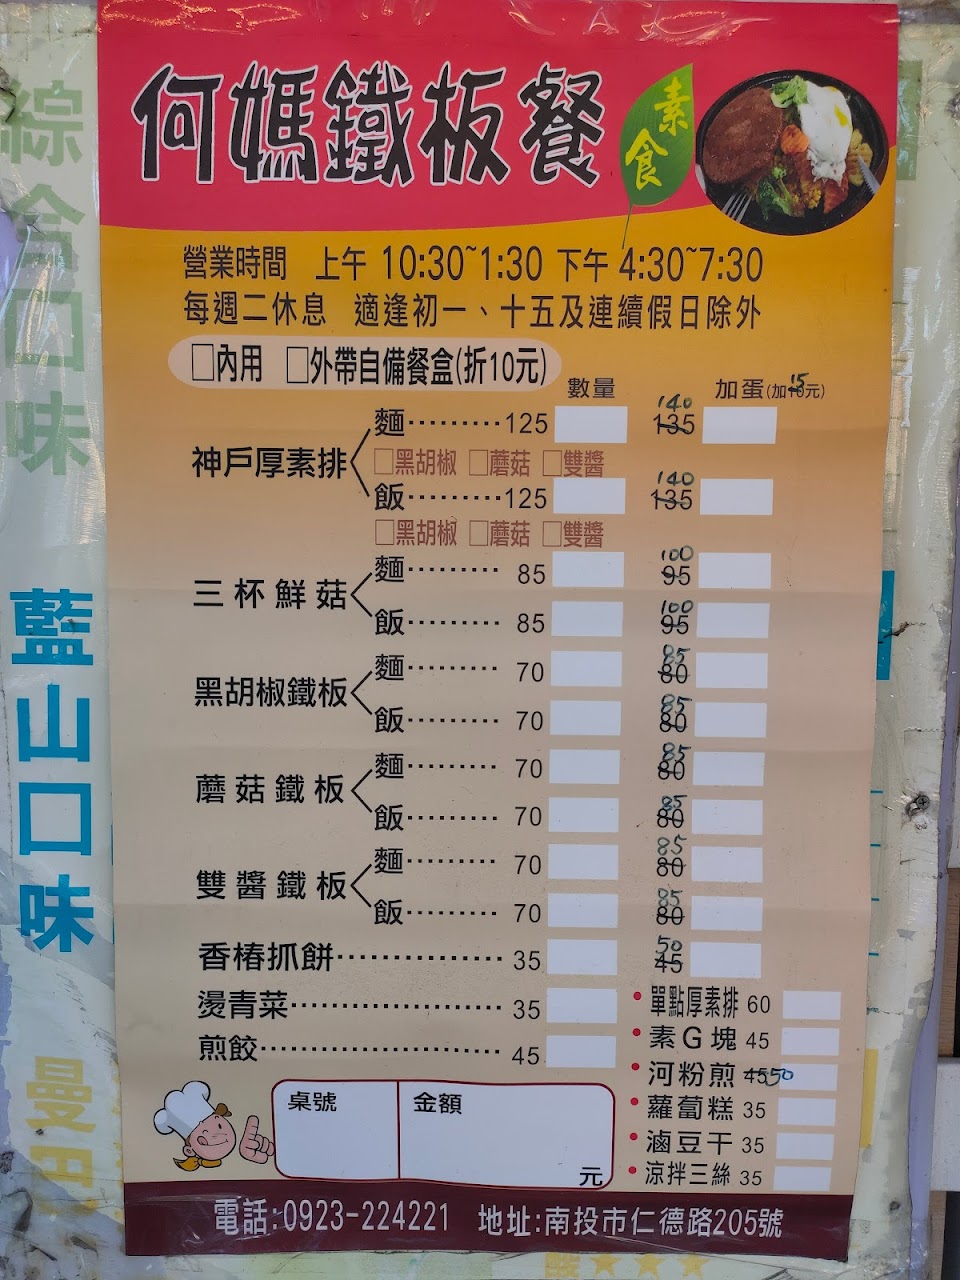 何媽鐵板餐
素食
營業時間 上午 10:30~1:30 下午 4:30~7:30
每週二休息 適逢初一、十五及連續假日除外
□內用 □外帶自備餐盒(折10元)
數量 加蛋(加10元) 15
神戶厚素排
麵·········125 135 140
□黑胡椒 □蘑菇 □雙醬
飯·········125 135 140
□黑胡椒 □蘑菇 □雙醬
三杯鮮菇
麵········· 85 95 100
飯········· 85 95 100
黑胡椒鐵板
麵········· 70 80 85
飯········· 70 80 85
蘑菇鐵板
麵········· 70 80 85
飯········· 70 80 85
雙醬鐵板
麵········· 70 80 85
飯········· 70 80 85
香椿抓餅················ 35 45 50
燙青菜····················· 35
煎餃························ 45
•單點厚素排 60
•素G塊 45
•河粉煎 45 50
•蘿蔔糕 35
•滷豆干 35
•涼拌三絲 35
桌號 金額
元
電話:0923-224221 地址:南投市仁德路205號
綜合口味
藍山口味
曼巴